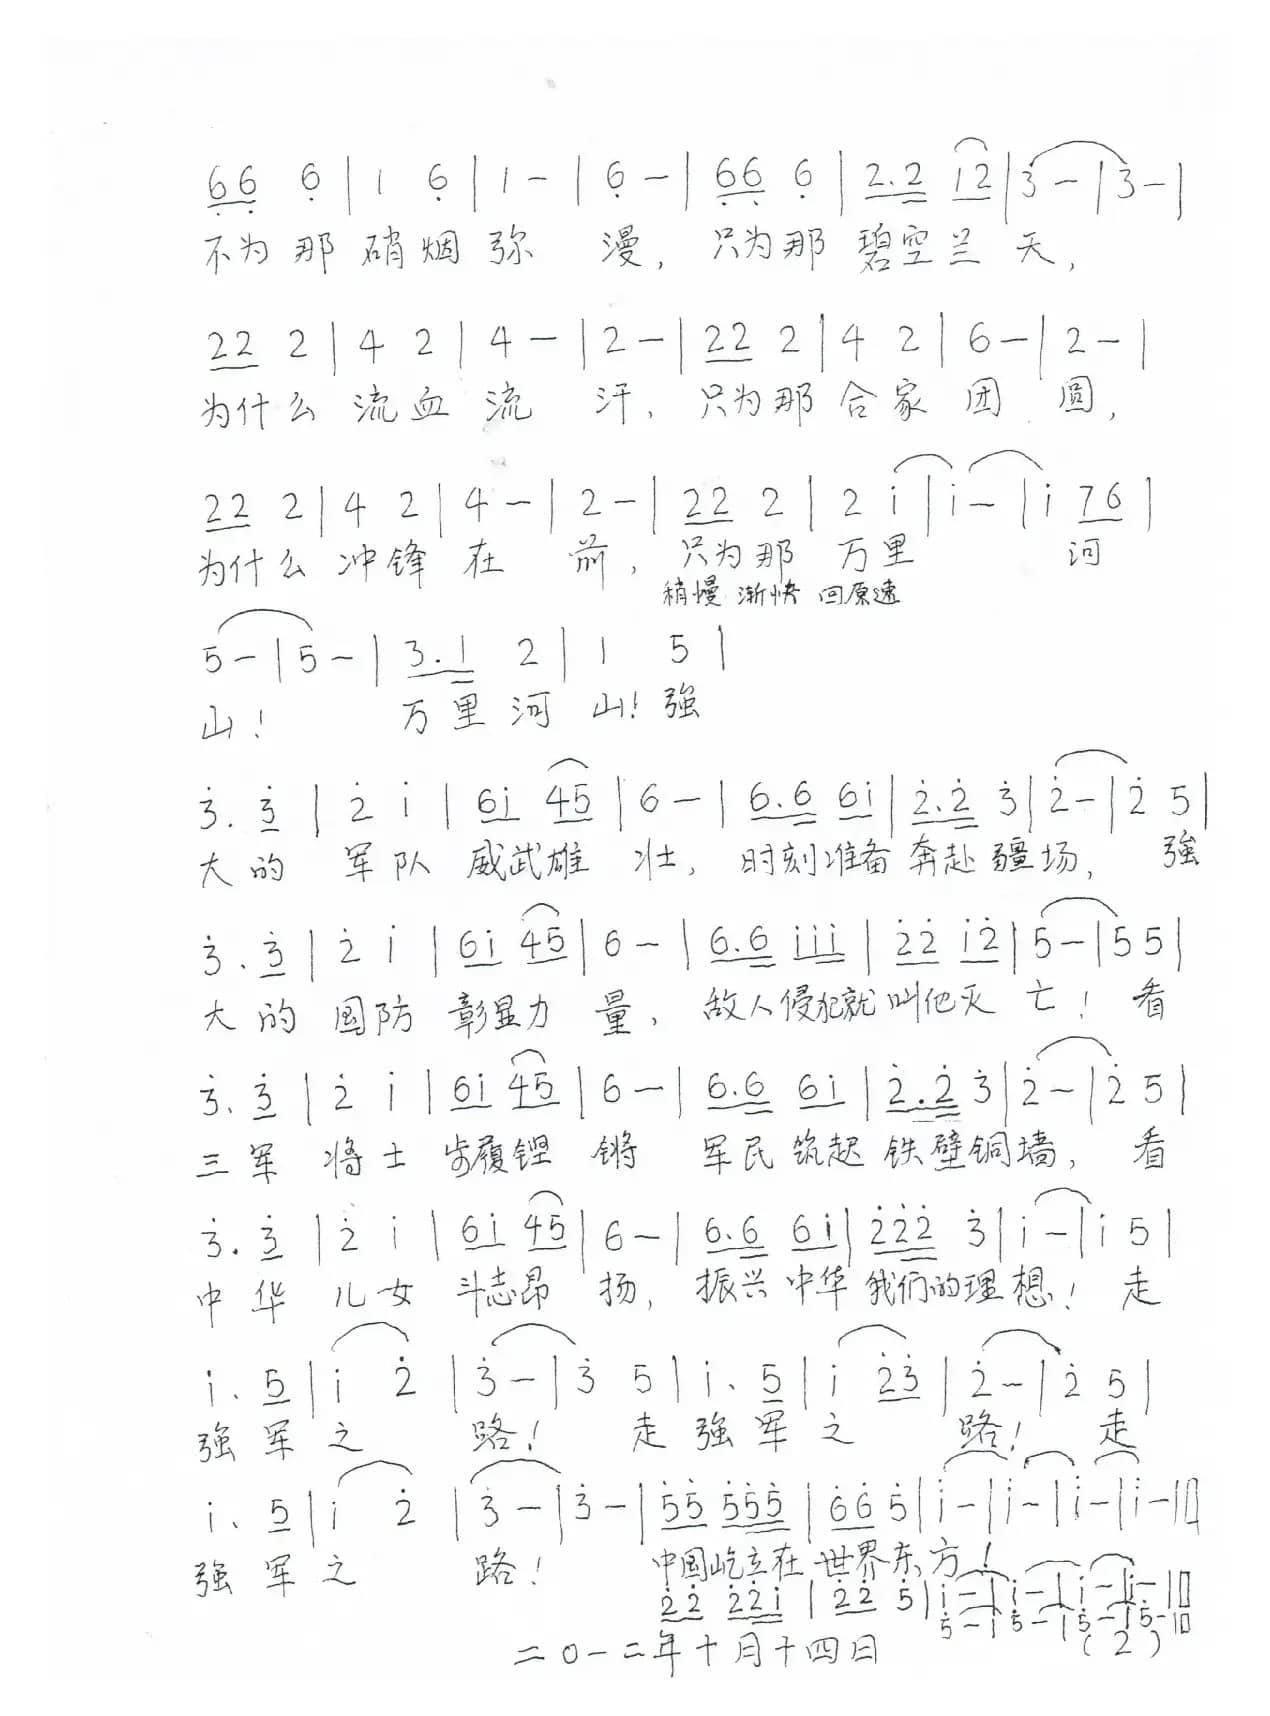 6̣6̣ 6̣ | 1 6̣ | 1 — | 6̣ — | 6̣6̣ 6̣ | 2.2 12 | 3 — | 3 — |
不为那硝烟弥 漫，只为那碧空兰 天，
22 2 | 4 2 | 4 — | 2 — | 22 2 | 4 2 | 6 — | 2 — |
为什么流血流 汗，只为那合家团 圆，
22 2 | 4 2 | 4 — | 2 — | 22 2 | 2 i | i — | i 76 |
为什么冲锋在 前，只为那 万里 河
稍慢 渐快 回原速
5 — | 5 — | 3.1 2 | 1 5 |
山！ 万里河山！强
3̇. 3̇ | 2̇ i | 6i 45 | 6 — | 6.6 6i | 2̇.2̇ 3̇ | 2̇ — | 2̇ 5 |
大的 军队 威武雄 壮，时刻准备奔赴疆场，强
3̇. 3̇ | 2̇ i | 6i 45 | 6 — | 6.6 iii | 2̇2̇ i2̇ | 5 — | 5 5 |
大的 国防 彰显力 量，敌人侵犯就叫他灭 亡！看
3̇. 3̇ | 2̇ i | 6i 45 | 6 — | 6.6 6i | 2̇.2̇ 3̇ | 2̇ — | 2̇ 5 |
三军 将士 步履铿 锵 军民筑起铁壁铜墙，看
3̇. 3̇ | 2̇ i | 6i 45 | 6 — | 6.6 6i | 2̇2̇2̇ 3̇ | i — | i 5 |
中华 儿女 斗志昂 扬，振兴中华我们的理想！走
i. 5 | i 2̇ | 3̇ — | 3̇ 5 | i. 5 | i 2̇3̇ | 2̇ — | 2̇ 5 |
强军之 路！ 走强军之 路！ 走
i. 5 | i 2̇ | 3̇ — | 3̇ — | 5̇5̇ 5̇5̇5̇ | 6̇6̇ 5̇ | i — | i — | i — | i — ‖
强军之 路！ 中国屹立在世界东方！
2̇2̇ 2̇2̇i | 2̇2̇ 5 | i — | i — | i — | i — ‖
5 — | 5 — | 5 — | 5 — ‖
二〇一二年十月十四日 （2）